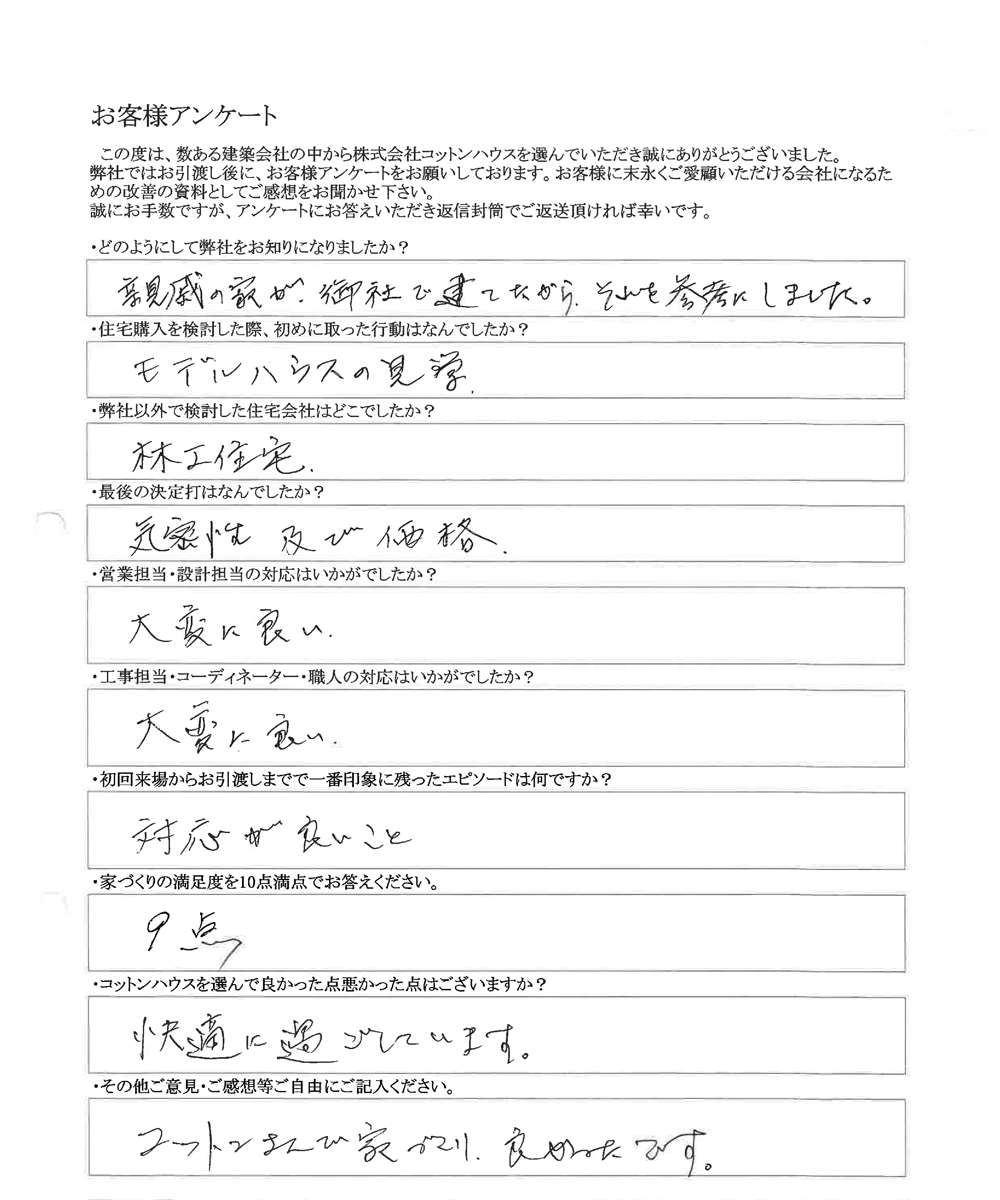 お客様アンケート
この度は、数ある建築会社の中から株式会社コットンハウスを選んでいただき誠にありがとうございました。
弊社ではお引渡し後に、お客様アンケートをお願いしております。お客様に末永くご愛顧いただける会社になるた
めの改善の資料としてご感想をお聞かせ下さい。
誠にお手数ですが、アンケートにお答えいただき返信封筒でご返送頂ければ幸いです。
・どのようにして弊社をお知りになりましたか？
親戚の家が、御社で建てたから、それを参考にしました。
・住宅購入を検討した際、初めに取った行動はなんでしたか？
モデルハウスの見学.
・弊社以外で検討した住宅会社はどこでしたか？
林工住宅.
・最後の決定打はなんでしたか？
気密性 及び 価格.
・営業担当・設計担当の対応はいかがでしたか？
大変に良い.
・工事担当・コーディネーター・職人の対応はいかがでしたか？
大変に良い.
・初回来場からお引渡しまでで一番印象に残ったエピソードは何ですか？
対応が良いこと
・家づくりの満足度を10点満点でお答えください。
9点
・コットンハウスを選んで良かった点悪かった点はございますか？
快適に過ごしています。
・その他ご意見・ご感想等ご自由にご記入ください。
コットンさんで家づくり、良かったです。